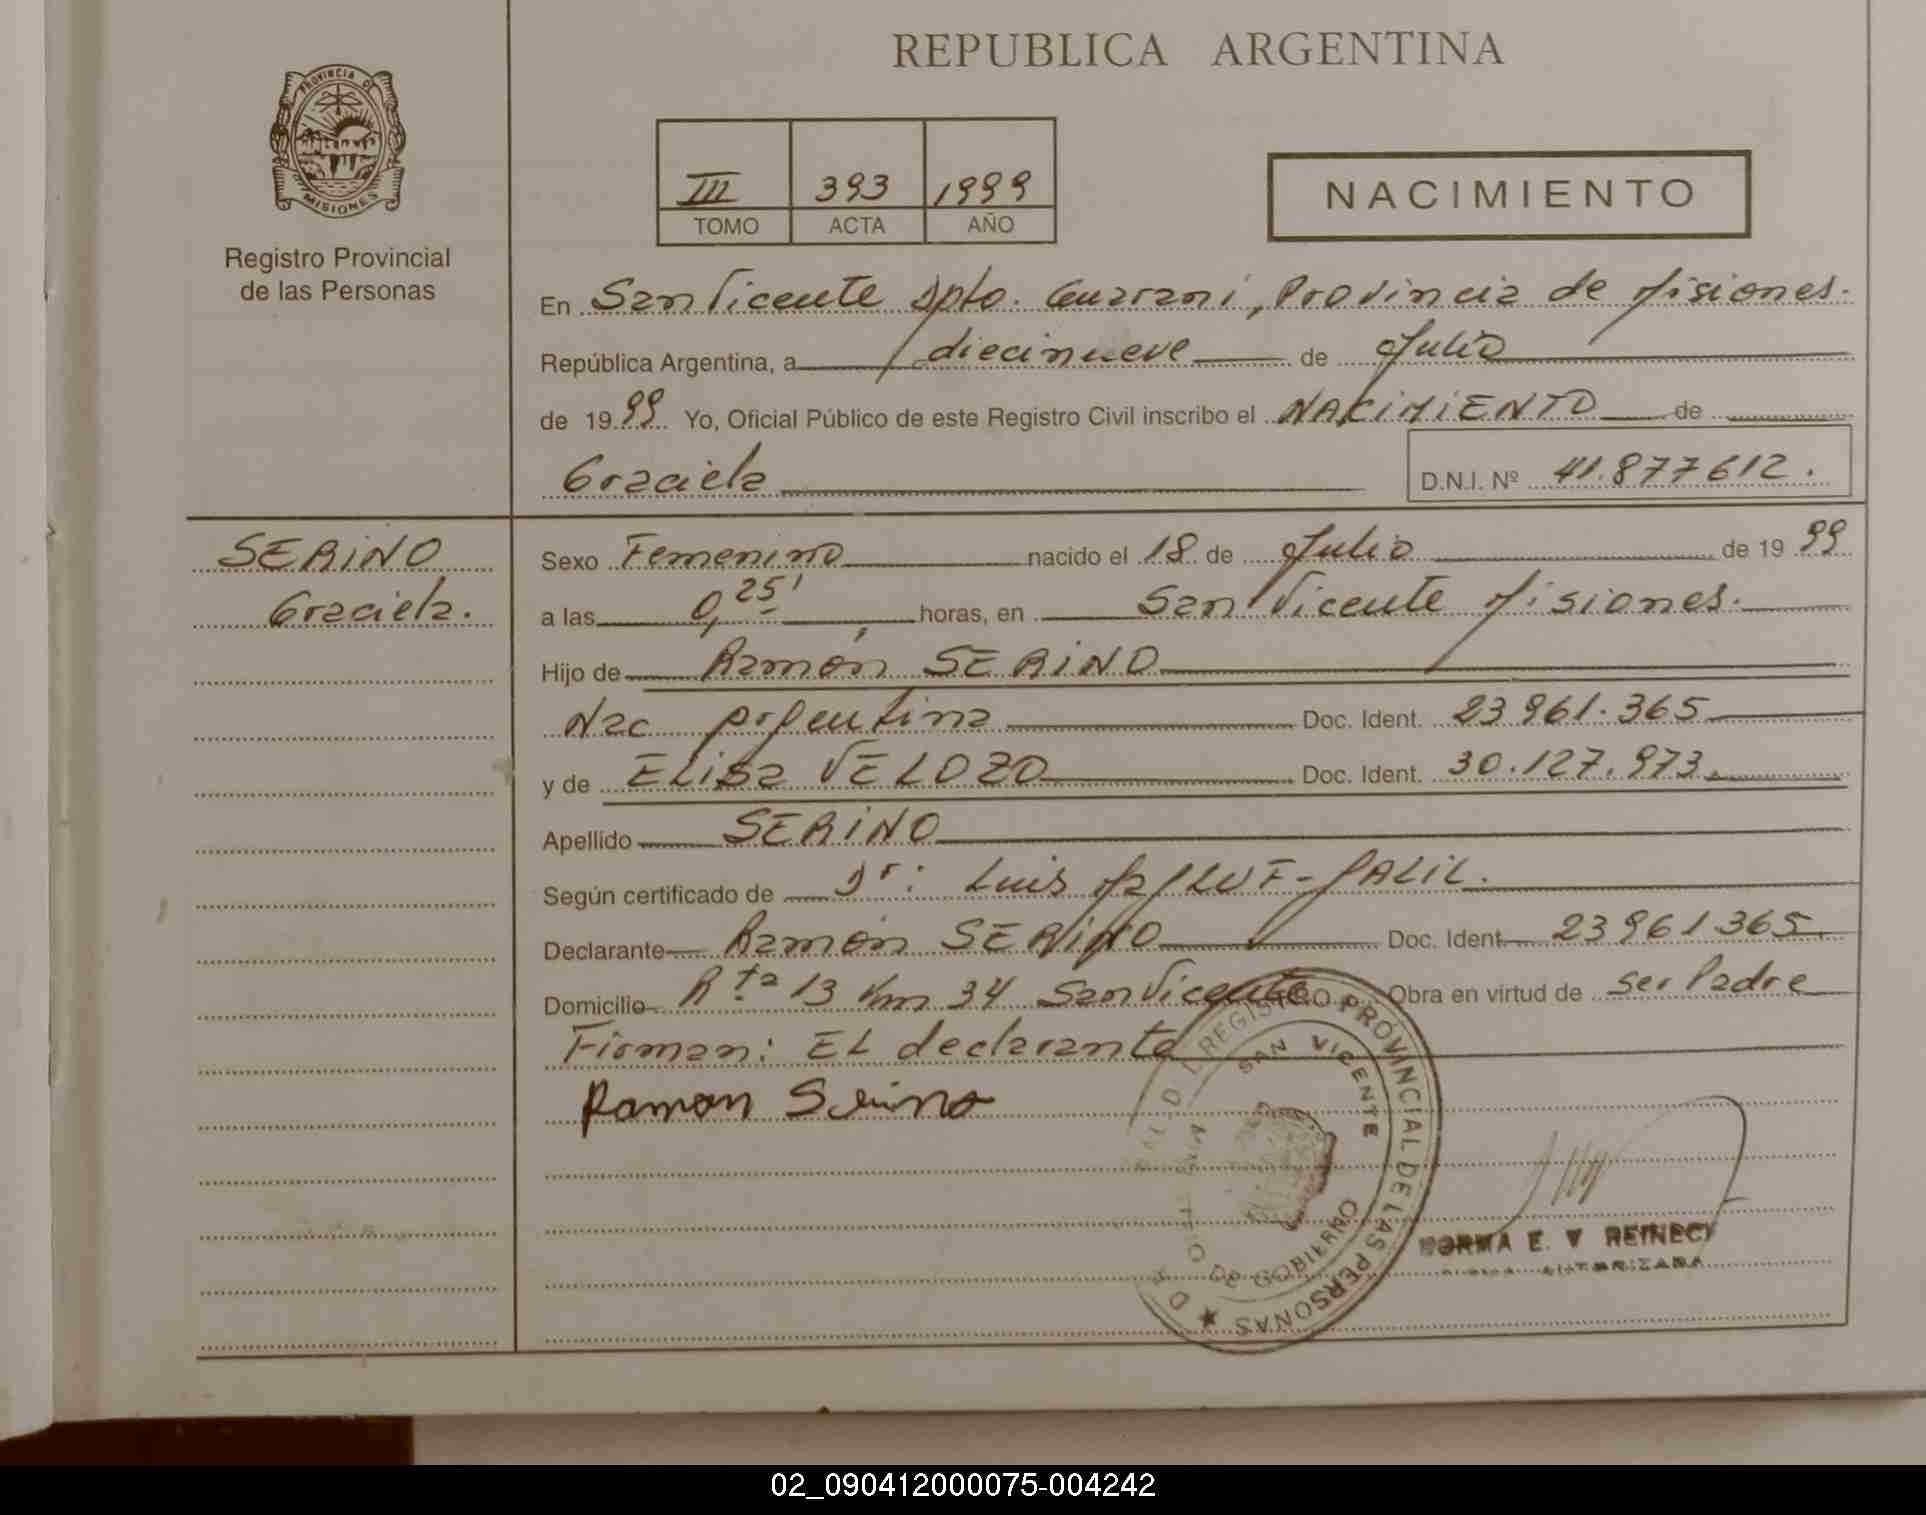 REPUBLICA ARGENTINA
PROVINCIA D
MISIONES
Registro Provincial
de las Personas
III 393 1999
TOMO ACTA AÑO
NACIMIENTO
En San Vicente Dpto. Guarani, Provincia de Misiones.
República Argentina, a diecinueve de Julio
de 1999 Yo, Oficial Público de este Registro Civil inscribo el NACIMIENTO de
Graciela D.N.I. Nº 41.877612.
SERINO
Graciela.
Sexo Femenino nacido el 18 de Julio de 1999
a las 0,25' horas, en San Vicente Misiones.
Hijo de Ramón SERINO
Nac Argentina Doc. Ident. 23961.365
y de ELisa VELOZO Doc. Ident. 30.127.973.
Apellido SERINO
Según certificado de Dr: Luis
Declarante Ramón SERINO Doc. Ident 23961365.
Domicilio Rta 13 Km 34 San Vicente Obra en virtud de ser Padre
Firman: EL declarante
Ramon Serino
REGISTRO PROVINCIAL DE LAS PERSONAS
SAN VICENTE
DE GOBIERNO
NORMA E. V REINECK
AUTORIZADA
02_090412000075-004242